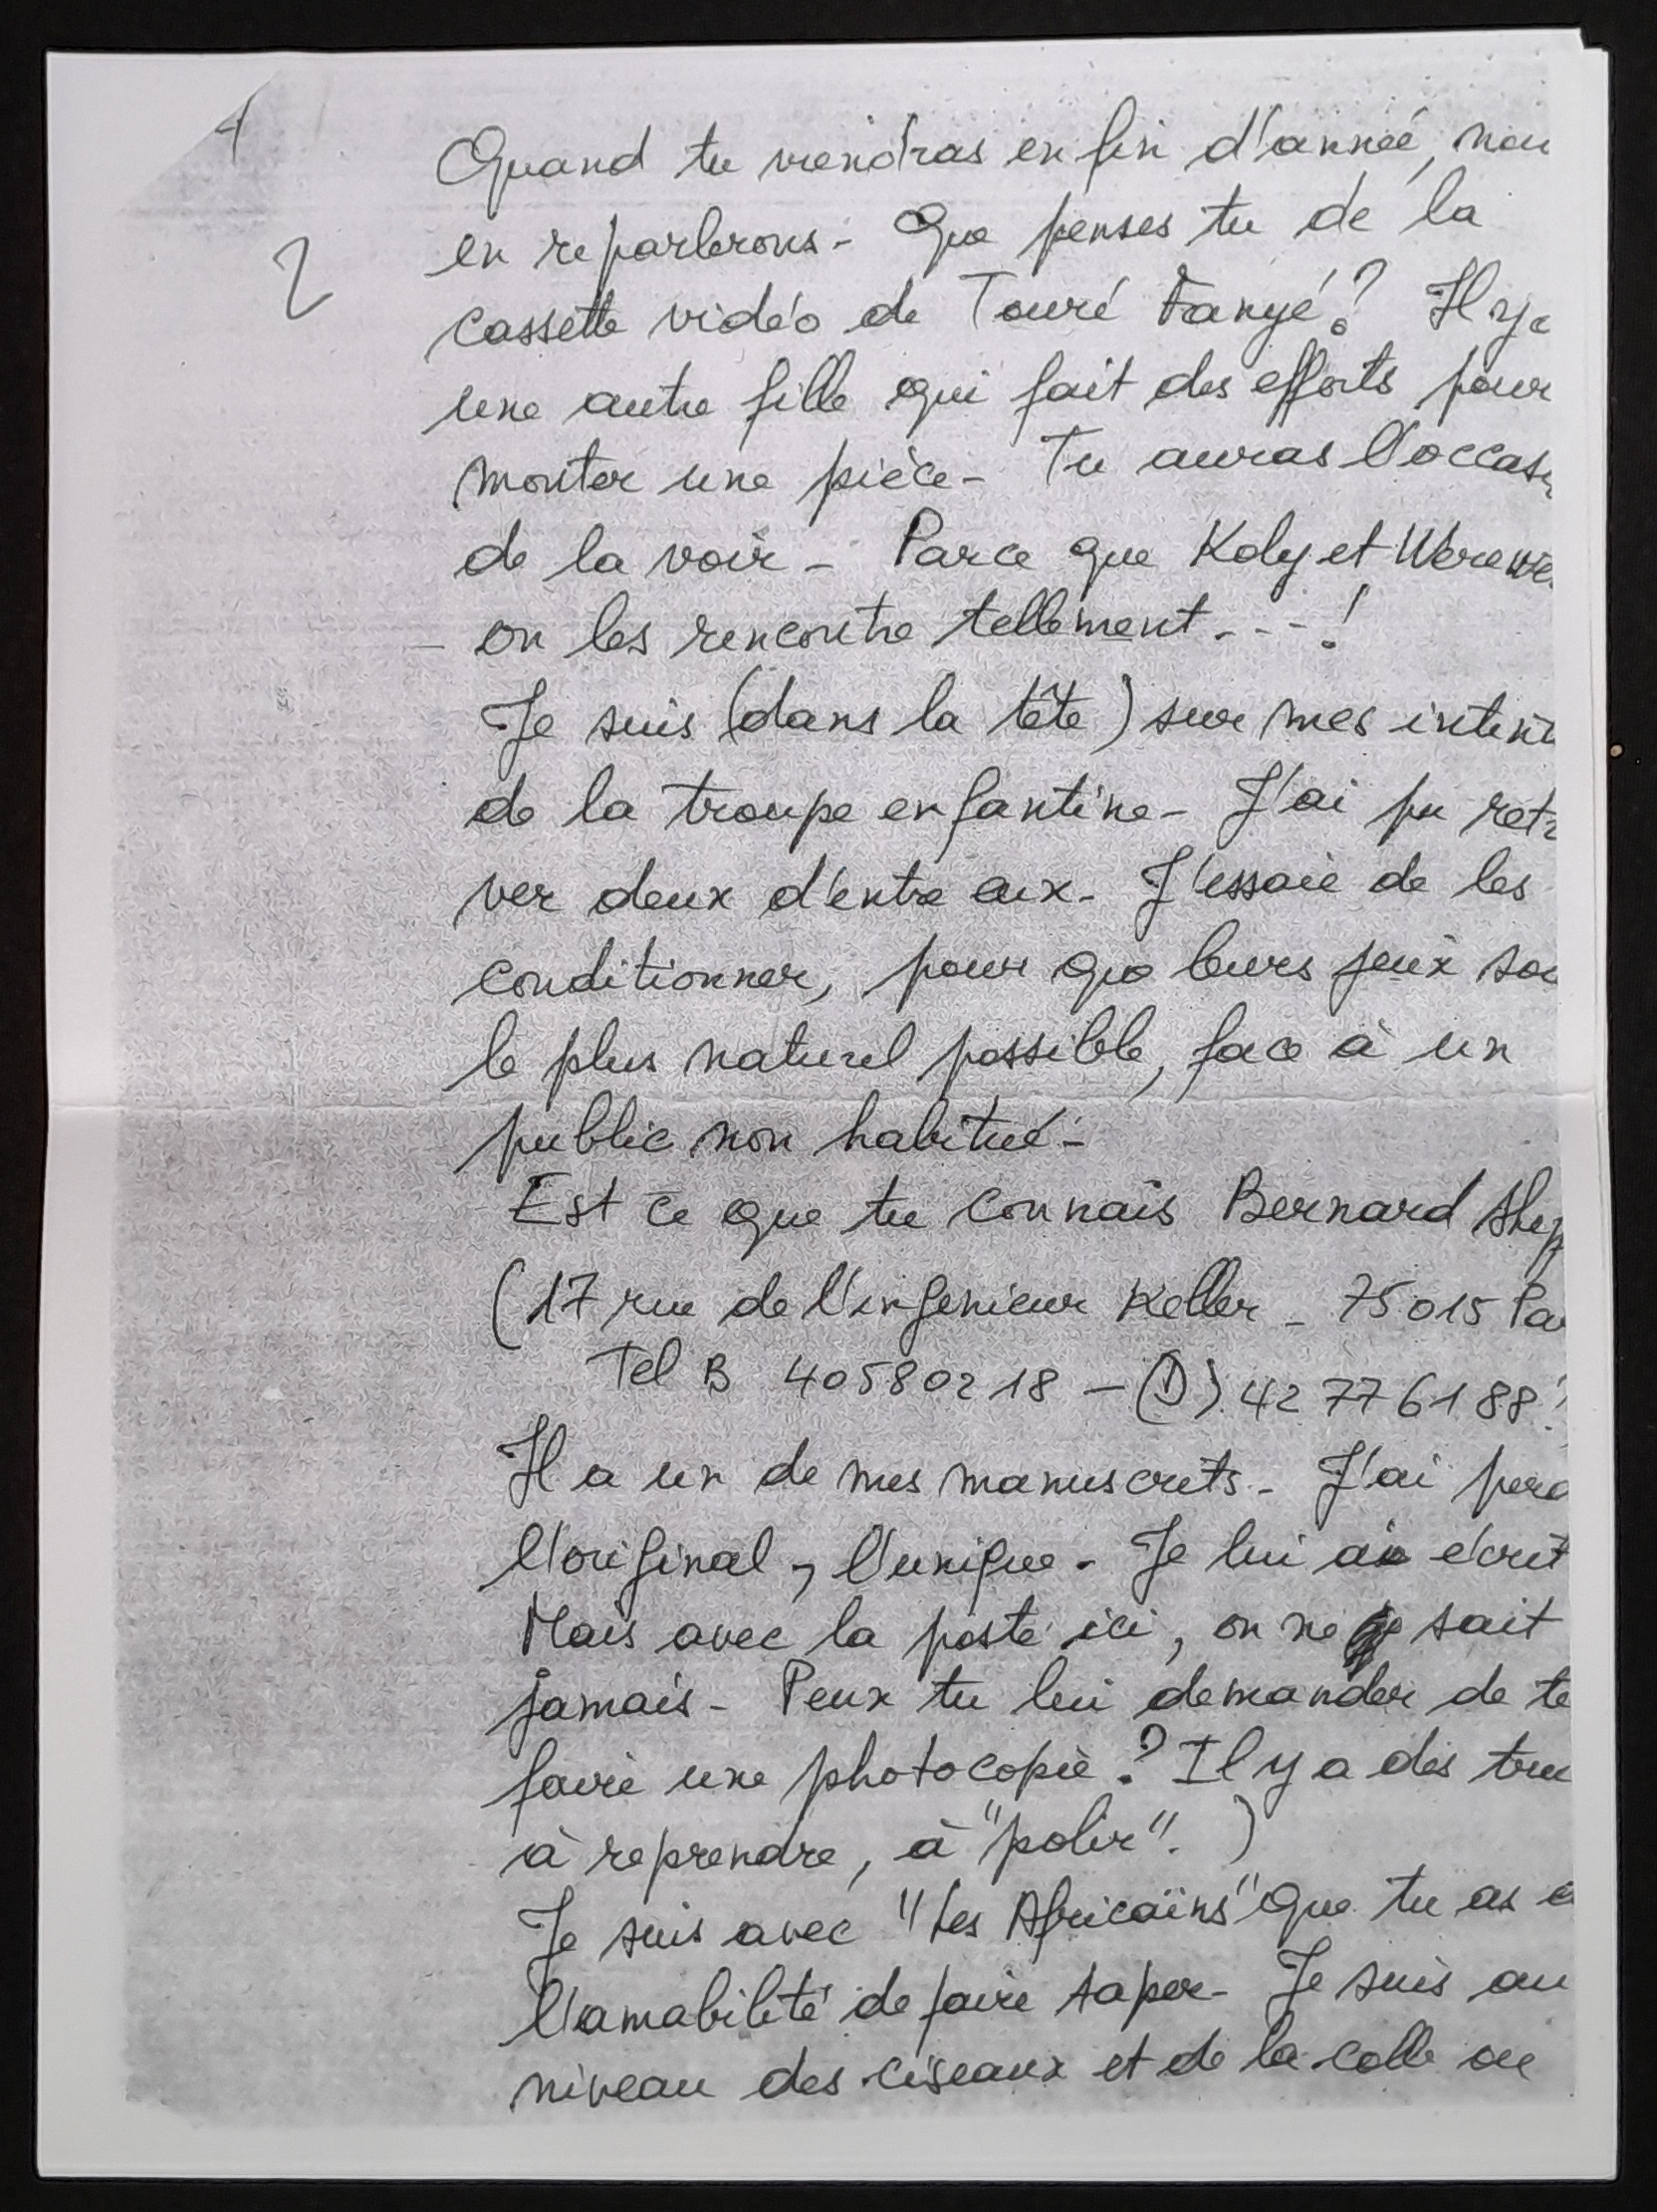 4
2
Quand tu viendras en fin d'année, nou
en reparlerons - Que penses tu de la
cassette vidéo de Touré Fanyé? Il y a
une autre fille qui fait des efforts pour
monter une pièce - Tu auras l'occasi
de la voir - Parce que Koly et Werewe
on les rencontre tellement - - - !
Je suis (dans la tête) sur mes
de la troupe enfantine - J'ai pu retr
ver deux d'entre eux - J'essaie de les
conditionner, pour que leurs jeux soi
le plus naturel possible, face à un
public non habitué -
Est ce que tu connais Bernard
(17 rue de l'ingenieur Keller - 75015 Pa
Tel B 40580218 - (D) 42 77 61 88?
Il a un de mes manuscrits - J'ai perd
l'original, l'unique - Je lui ai écrit
Mais avec la poste ici, on ne sait
jamais - Peux tu lui demander de te
faire une photocopie? Il y a des truc
à reprendre, à "polir". )
Je suis avec "Les Africains" que tu as e
l'amabilité de faire taper - Je suis au
niveau des ciseaux et de la colle ou